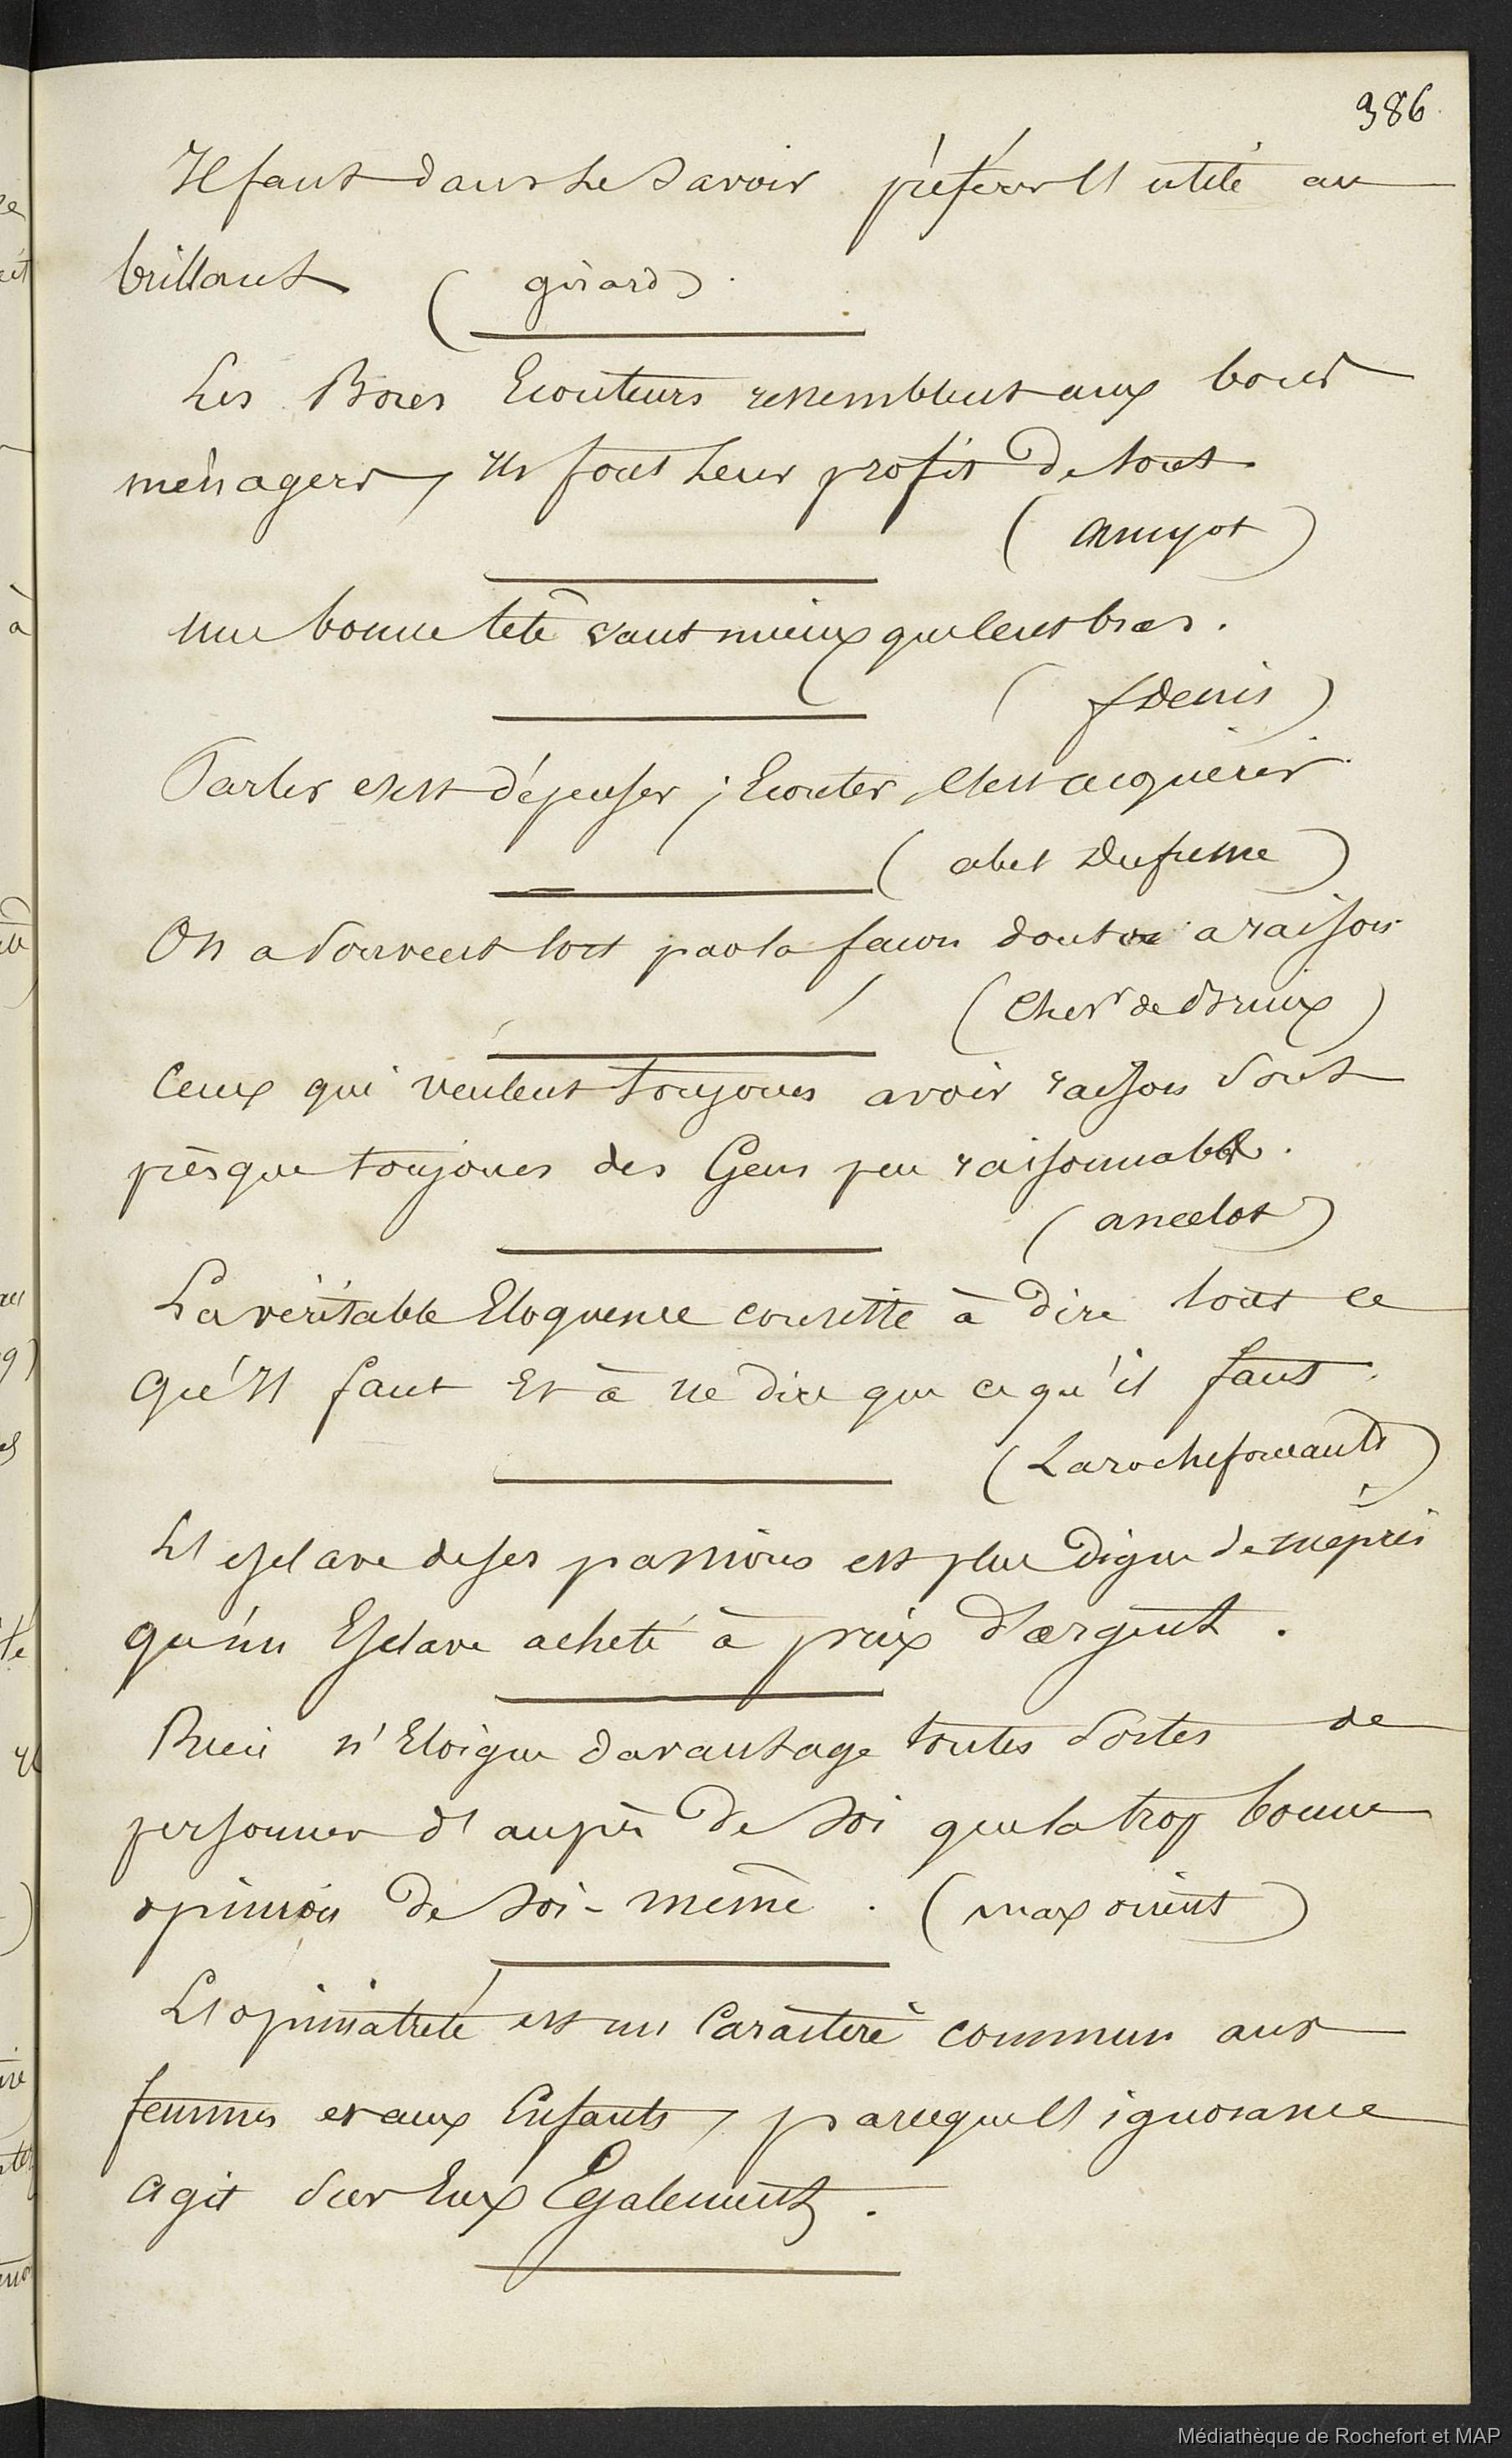 386
Il faut dans le savoir préférer l'utile au
brillant (girard)
Les Bons Ecouteurs ressemblent aux bons
ménagers, Ils font leur profit de tout
(amyot)
une bonne tête vaut mieux que cent bras.
(f Denis)
Parler c'est dépenser ; Ecouter, c'est acquérir
(abel Dufresne)
On a souvent tort par la façon dont on a raison
(Cher de Bruix)
Ceux qui veulent toujours avoir raison sont
présque toujours des Gens peu raisonnable.
(ancelot)
La véritable Eloquence consiste à dire tout ce
qu'Il faut Et à ne dire que ce qu'il faut.
(Larochefoucault)
L'esclave de ses passions est plus digne de mépris
qu'un Esclave acheté à prix d'argent.
Rien n'Eloigne davantage toutes sortes de
personnes d'auprès de soi que la trop bonne
opinion de soi-même. (max orient)
L'opiniatreté est un Caractère commun aux
femmes et aux Enfants, parceque l'ignorance
agit sur Eux Egalement.
Médiathèque de Rochefort et MAP